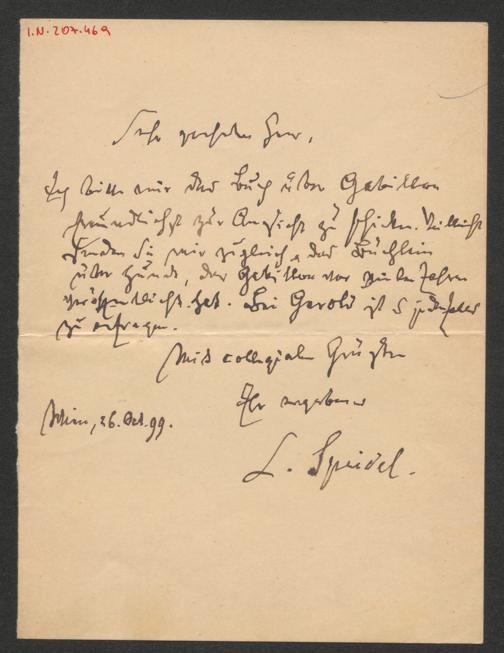 I.N. 207.469
Sehr geehrter Herr,
Ich bitte mir das Buch über Gabillon
freundlichst zur Ansicht zu schicken. Vielleicht
senden Sie mir zugleich das Büchlein
über Hunde, das Gabillon vor Jahren
veröffentlicht hat. Bei Gerold ist es
zu erfragen.
Mit collegialen Grüßen
Ihr ergebener
Wien, 26. Oct. 99.
L. Speidel.